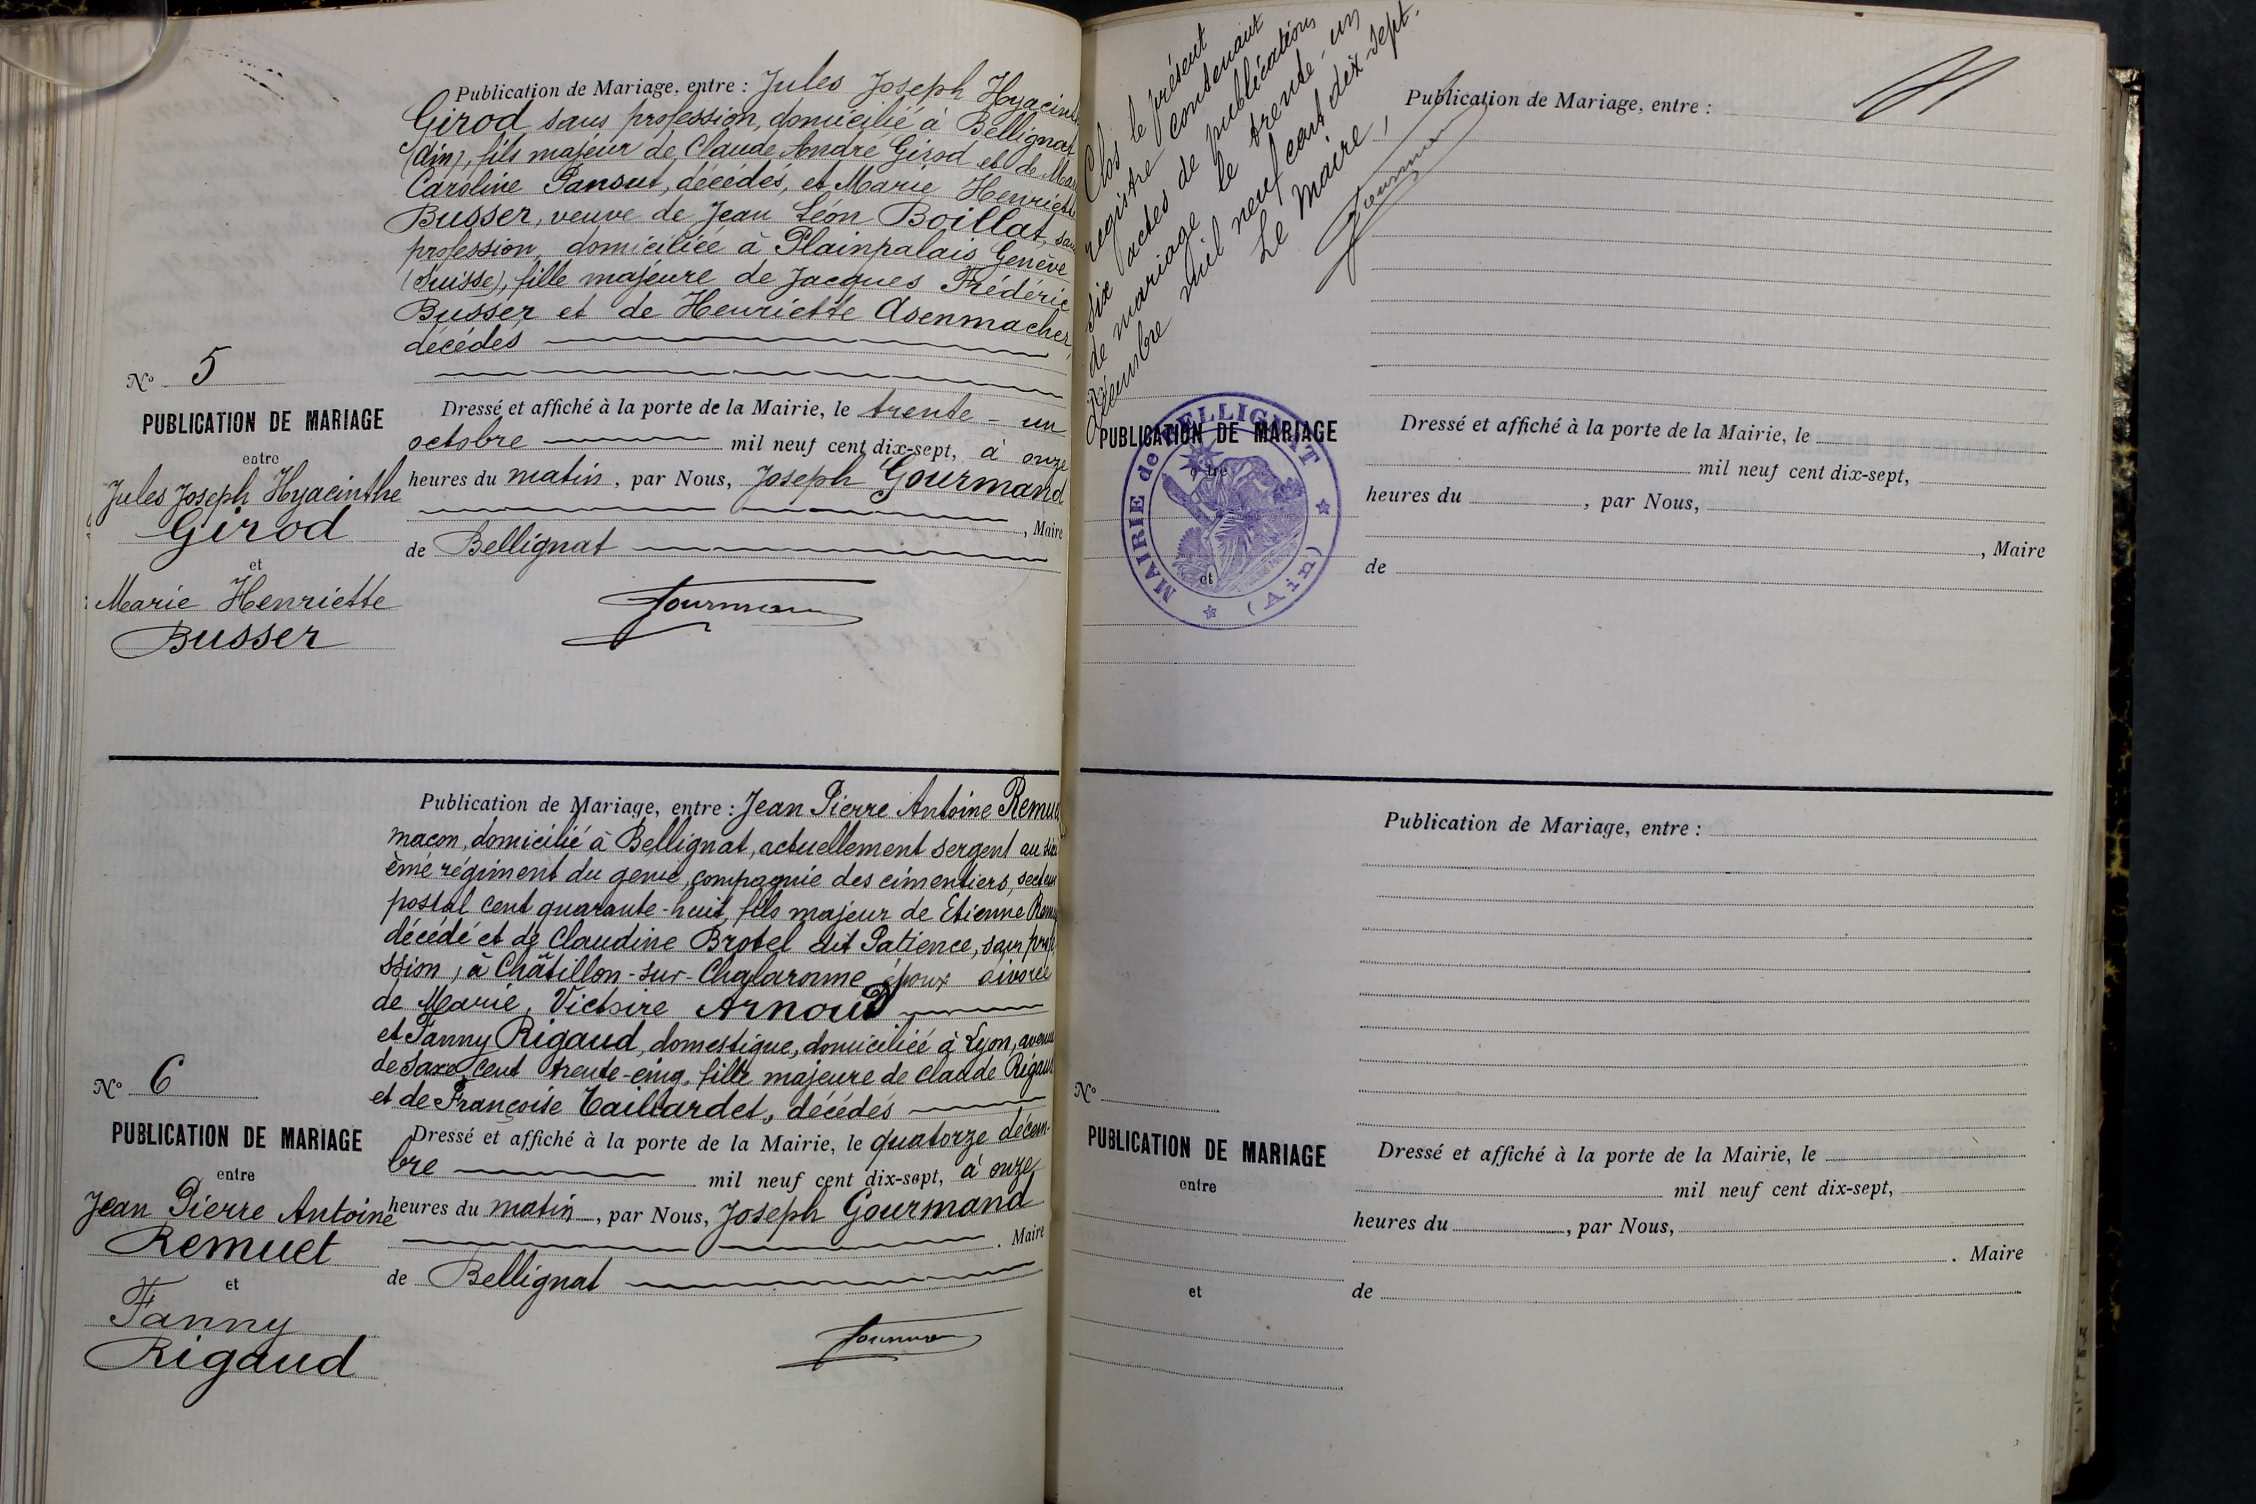 Publication de Mariage, entre : Jules Joseph Hyacinthe
Girod, sans profession, domicilié à Bellignat
(Ain), fils majeur de Claude André Girod et de Marie
Caroline Panout, décédés, et Marie Henriette
Busser, veuve de Jean Léon Boillat, sans
profession, domiciliée à Plainpalais Genève
(Suisse), fille majeure de Jacques Frédéric
Busser et de Henriette Asenmacher,
décédés
N° 5
PUBLICATION DE MARIAGE
entre
Jules Joseph Hyacinthe
Girod
et
Marie Henriette
Busser
Dressé et affiché à la porte de la Mairie, le trente-un
octobre mil neuf cent dix-sept, à onze
heures du matin, par Nous, Joseph Gourmand
, Maire
de Bellignat
Gourmand
Publication de Mariage, entre : Jean Pierre Antoine Remuet
maçon, domicilié à Bellignat, actuellement sergent au sixi
ème régiment du génie, compagnie des cimentiers, secteur
postal cent quarante-huit, fils majeur de Etienne Remuet
décédé et de Claudine Brotel dit Patience, sans profe
ssion, à Châtillon-sur-Chalaronne époux divorcé
de Marie, Victoire Arnoud
et Fanny Rigaud, domestique, domiciliée à Lyon, avenue
de Saxe, cent trente-cinq, fille majeure de Claude Rigaud
et de Françoise Taillardet, décédés
N° 6
PUBLICATION DE MARIAGE
entre
Jean Pierre Antoine
Remuet
et
Fanny
Rigaud
Dressé et affiché à la porte de la Mairie, le quatorze décem-
bre mil neuf cent dix-sept, à onze
heures du matin, par Nous, Joseph Gourmand
. Maire
de Bellignat
Gourmand
Clos le présent
registre contenant
six actes de publications
de mariage le trente-un
Décembre mil neuf cent dix-sept.
Le Maire,
Gourmand
PUBLICATION DE MARIAGE
entre
et
MAIRIE de BELLIGNAT
(Ain)
Publication de Mariage, entre :
Dressé et affiché à la porte de la Mairie, le
mil neuf cent dix-sept,
heures du , par Nous,
, Maire
de
Publication de Mariage, entre :
N°
PUBLICATION DE MARIAGE
entre
et
Dressé et affiché à la porte de la Mairie, le
mil neuf cent dix-sept,
heures du , par Nous,
. Maire
de